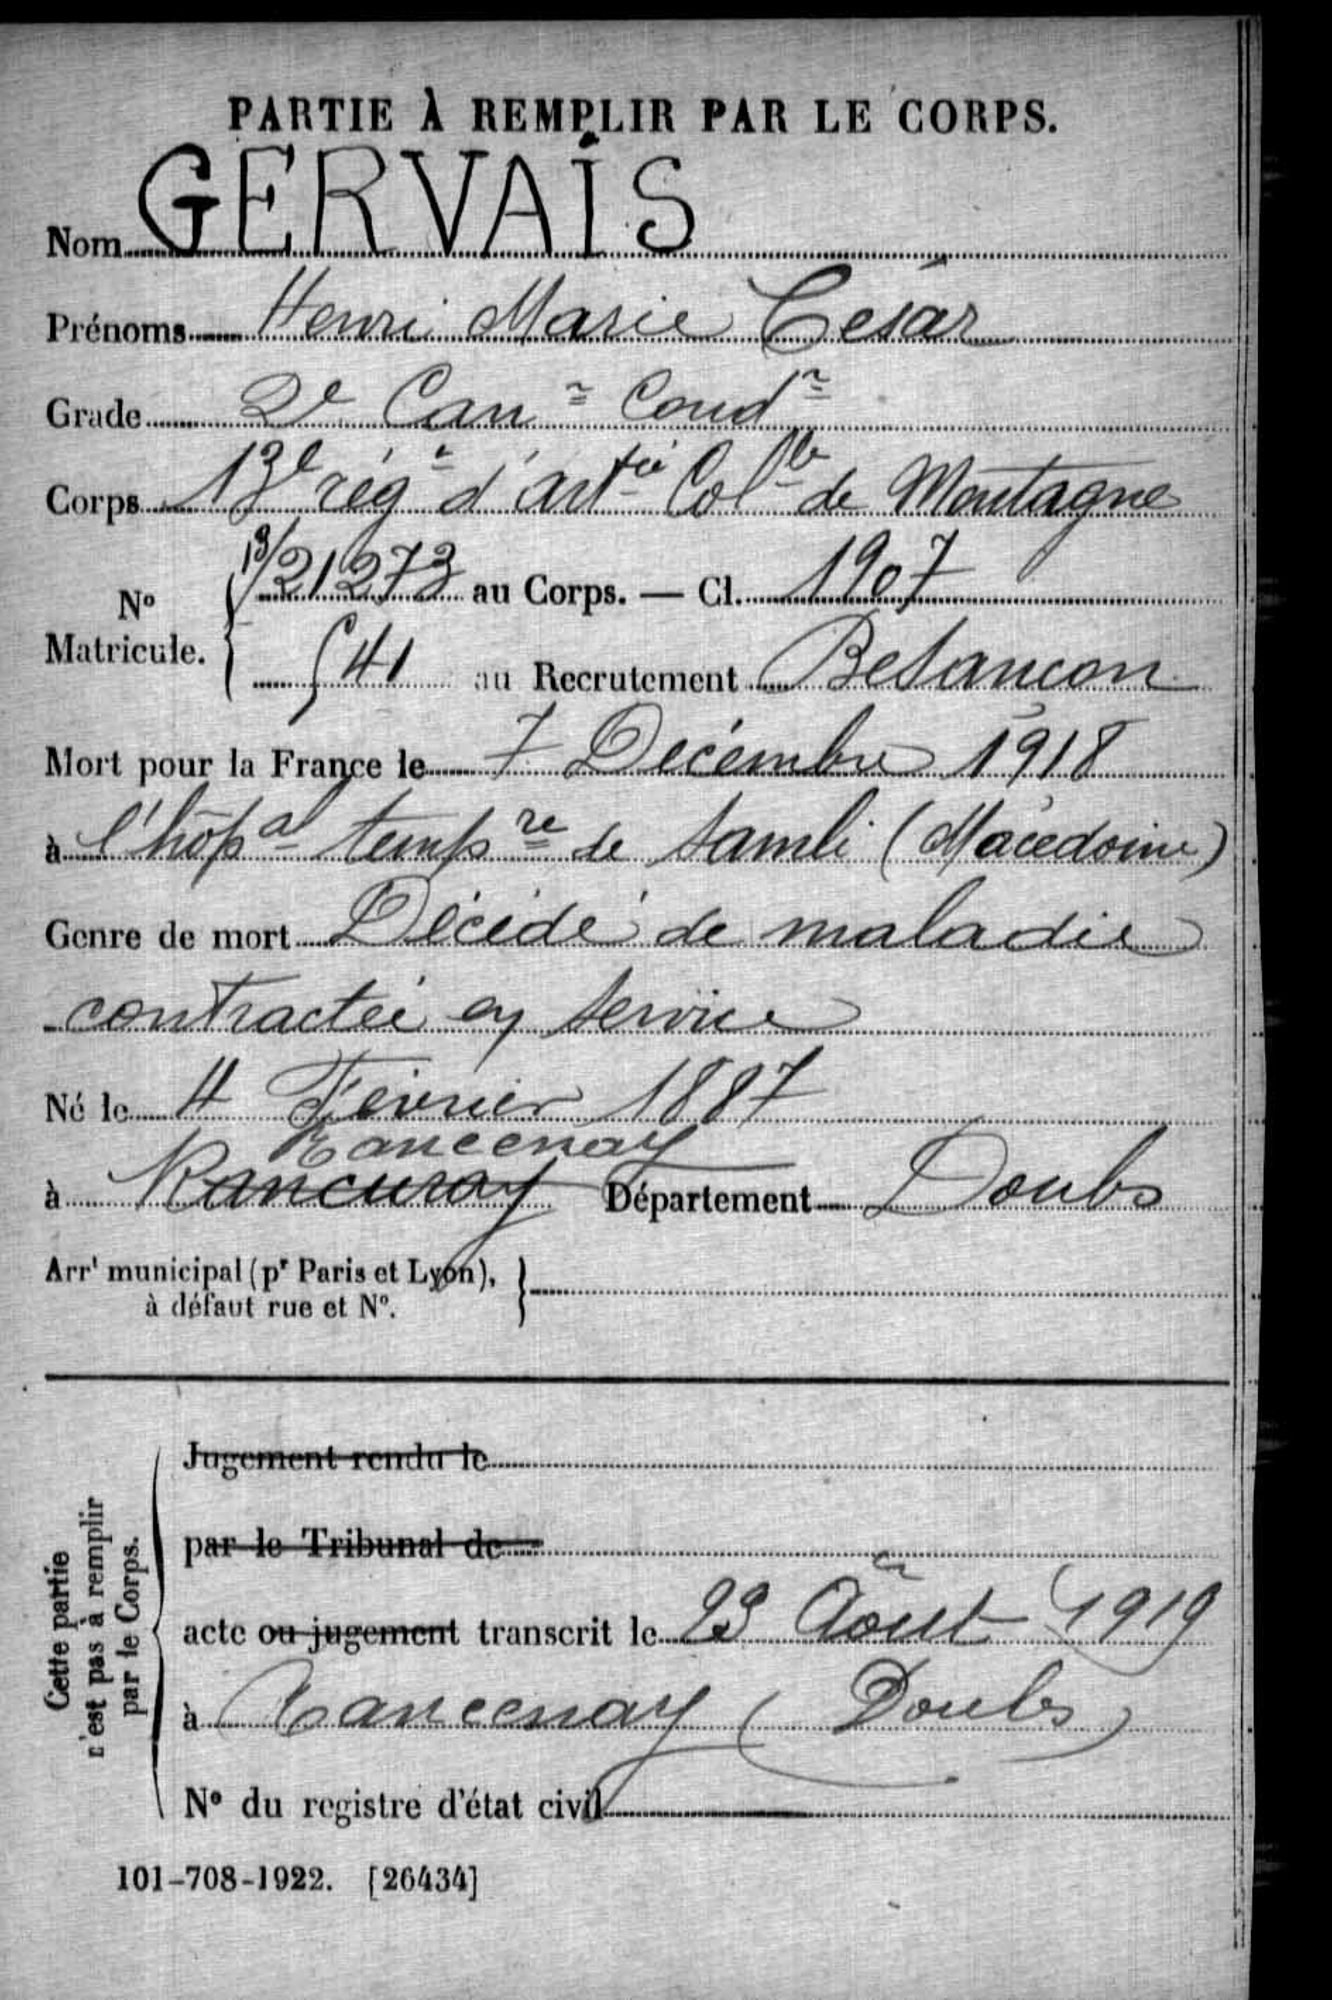 PARTIE À REMPLIR PAR LE CORPS.
Nom GERVAIS
Prénoms Henri Marie César
Grade 2e Can^r Cond^r
Corps 13e rég^t d'art^ie Col^le de Montagne
N° Matricule. 13/21273 au Corps. — Cl. 1907
541 au Recrutement Besançon
Mort pour la France le 7 Décembre 1918
à l'hôp^al temp^re de Samli (Macédoine)
Genre de mort Décédé de maladie
contractée en service
Né le 4 Février 1887
Rancenay
à Rancuray Département Doubs
Arr^t municipal (p^r Paris et Lyon),
à défaut rue et N°.
Cette partie
n'est pas à remplir
par le Corps.
Jugement rendu le
par le Tribunal de
acte ou jugement transcrit le 23 Août 1919
à Rancenay (Doubs)
N° du registre d'état civil
101-708-1922. [26434]